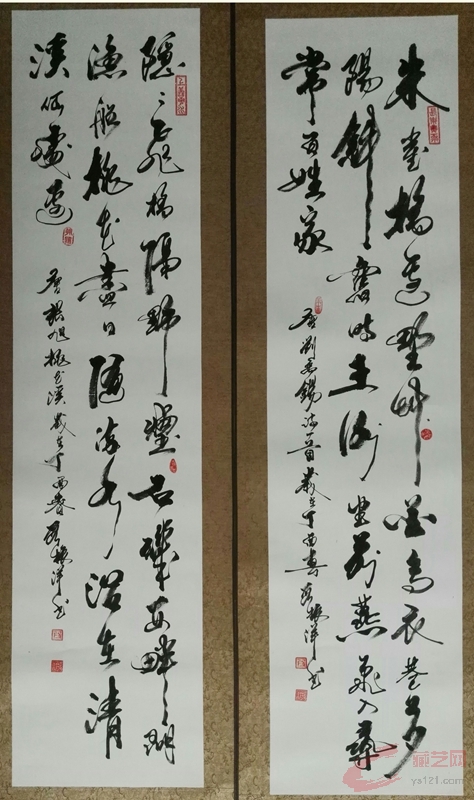 朱雀橋邊野艸花烏衣巷口夕
陽斜舊時王謝堂前燕飛入尋
常百姓家
唐劉禹錫詩 歲在丁酉春 振洋書
隱隱飛橋隔野煙石磯西畔問
漁船桃花盡日隨流水洞在清
溪何處邊
唐張旭桃花溪歲在丁酉春 振洋書
藏艺网
ys121.com